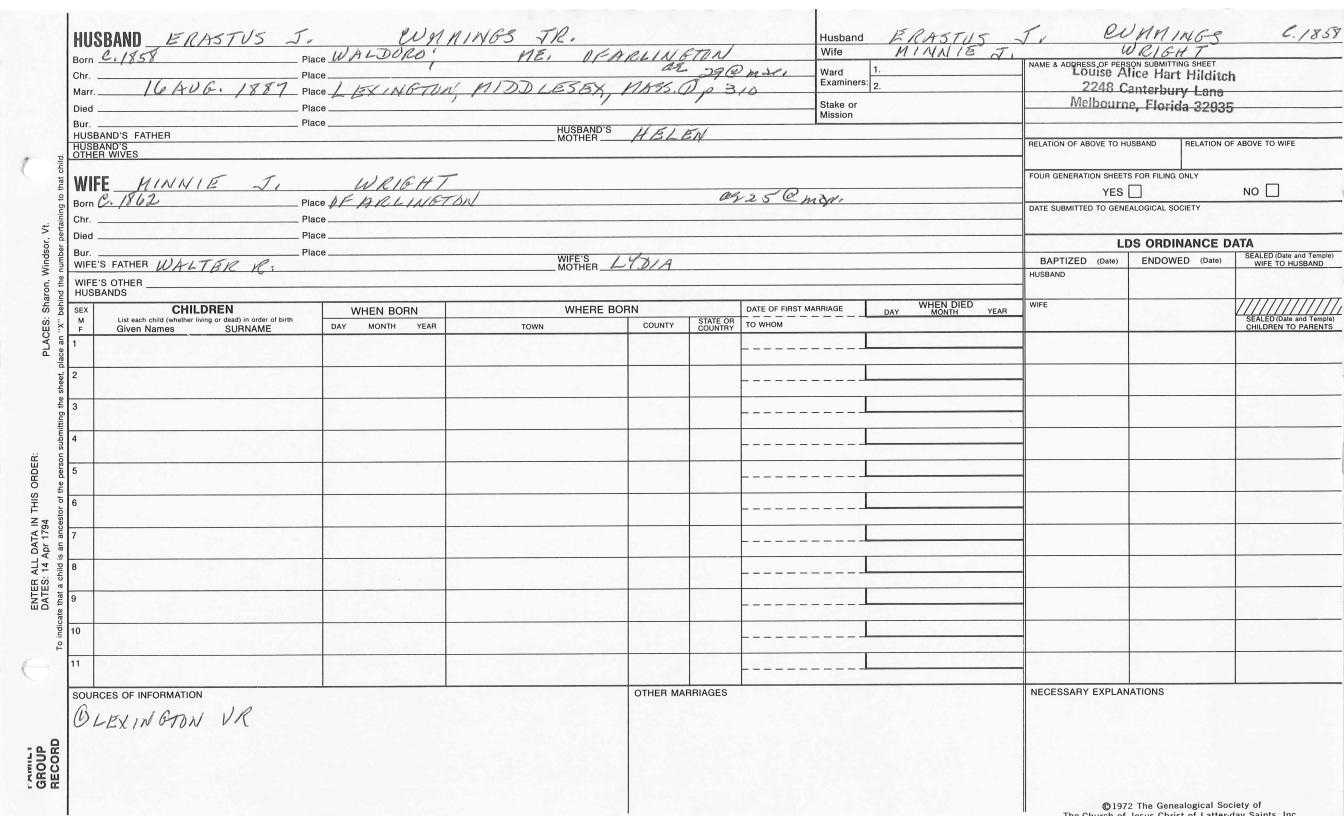 HUSBAND ERASTUS J. CUMMINGS JR.
Born C. 1858 Place WALDORO', ME. OF ARLINGTON
Chr. Place ag 29 @ mar.
Marr. 16 AUG. 1887 Place LEXINGTON, MIDDLESEX, MASS. ① p 310
Died Place
Bur. Place
HUSBAND'S FATHER HUSBAND'S MOTHER HELEN
HUSBAND'S OTHER WIVES
WIFE MINNIE J. WRIGHT
Born C. 1862 Place OF ARLINGTON ag 25 @ mar.
Chr. Place
Died Place
Bur. Place
WIFE'S FATHER WALTER R. WIFE'S MOTHER LYDIA
WIFE'S OTHER HUSBANDS
Husband ERASTUS J. CUMMINGS C. 1858
Wife MINNIE J. WRIGHT
Ward Examiners: 1.
2.
Stake or Mission
NAME & ADDRESS OF PERSON SUBMITTING SHEET
Louise Alice Hart Hilditch
2248 Canterbury Lane
Melbourne, Florida 32935
RELATION OF ABOVE TO HUSBAND RELATION OF ABOVE TO WIFE
FOUR GENERATION SHEETS FOR FILING ONLY
YES NO
DATE SUBMITTED TO GENEALOGICAL SOCIETY
LDS ORDINANCE DATA
BAPTIZED (Date) ENDOWED (Date) SEALED (Date and Temple) WIFE TO HUSBAND
HUSBAND
WIFE
SEALED (Date and Temple) CHILDREN TO PARENTS
SEX M F
CHILDREN
List each child (whether living or dead) in order of birth
Given Names SURNAME
WHEN BORN
DAY MONTH YEAR
WHERE BORN
TOWN COUNTY STATE OR COUNTRY
DATE OF FIRST MARRIAGE
TO WHOM
WHEN DIED
DAY MONTH YEAR
1
2
3
4
5
6
7
8
9
10
11
SOURCES OF INFORMATION
① LEXINGTON VR
OTHER MARRIAGES
NECESSARY EXPLANATIONS
©1972 The Genealogical Society of
The Church of Jesus Christ of Latter-day Saints, Inc.
FAMILY GROUP RECORD
ENTER ALL DATA IN THIS ORDER:
DATES: 14 Apr 1794
PLACES: Sharon, Windsor, Vt.
To indicate that a child is an ancestor of the person submitting the sheet, place an "X" behind the number pertaining to that child.